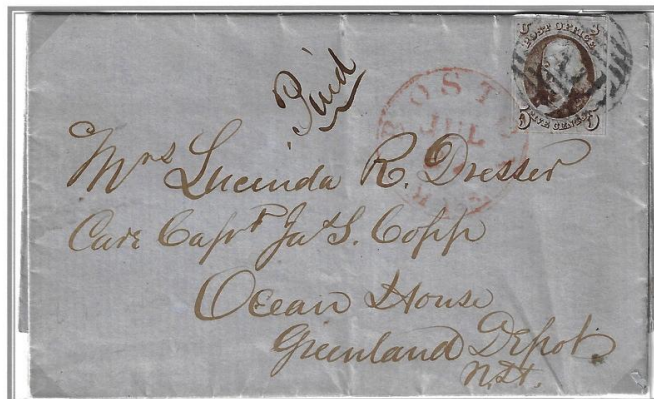 U S
POST OFFICE
5 FIVE CENTS 5
Paid
BOST
JUL
Mrs Lucinda R. Dresser
Care Capt Jas S. Copp
Ocean House
Greenland Depot.
N.H.